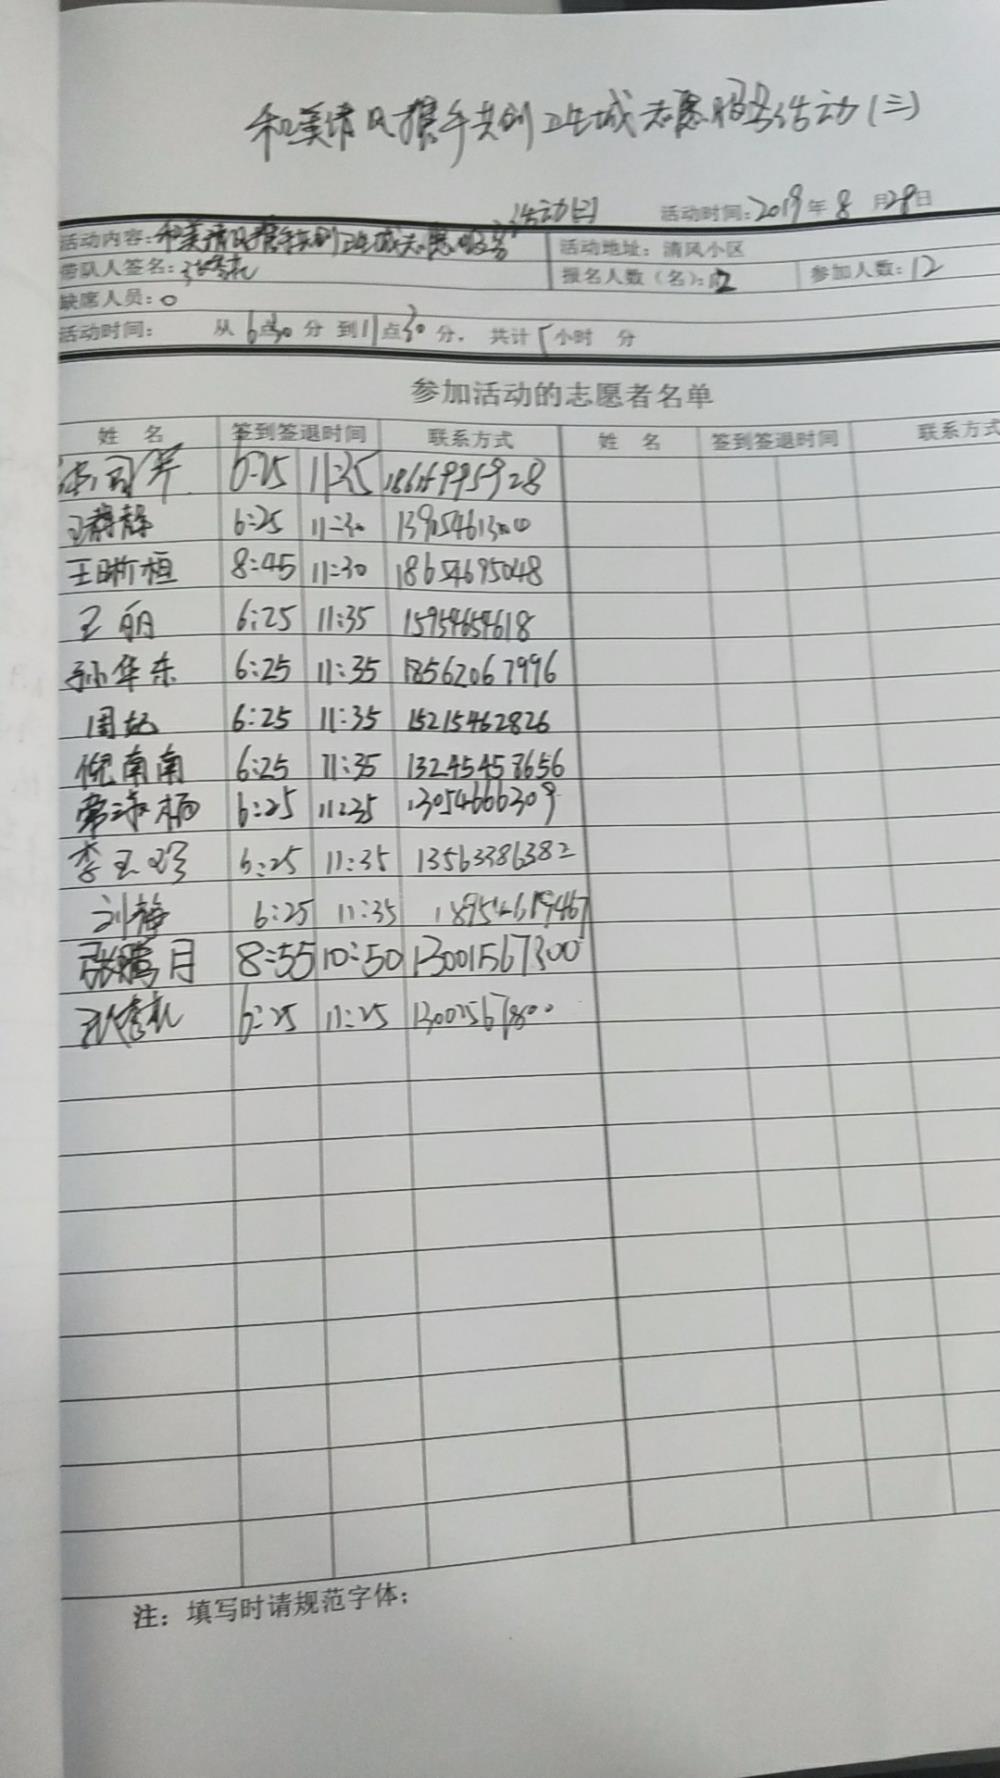 和美清风携手共创卫生城志愿服务活动(三)
活动时间:2019年8月29日
活动内容:和美清风携手共创卫生城志愿服务活动(三) 活动地址:清风小区
带队人签名: 报名人数(名):12 参加人数:12
缺席人员:0
活动时间: 从6点30分到11点30分. 共计5小时 分
参加活动的志愿者名单
姓 名 签到签退时间 联系方式 姓 名 签到签退时间 联系方式
6:25 11:35 18616995928
王静静 6:25 11:30
王晰桓 8:45 11:30 18654695048
王丽 6:25 11:35 15954654618
孙华东 6:25 11:35 18562067996
周 6:25 11:35 15215462826
倪南南 6:25 11:35 13245457656
常 6:25 11:35 13054666309
李玉珍 6:25 11:35 13563386382
刘梅 6:25 11:35
张腾月 8:55 10:50 13001567300
6:25 11:25
注:填写时请规范字体;